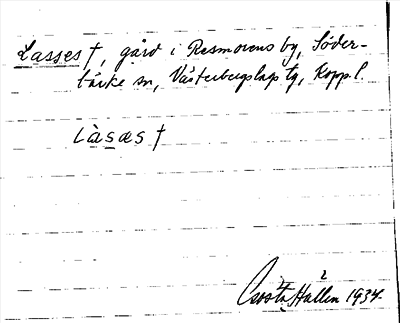 Lasses †, gård i Resmorens by, Söder-
bärke sn, Västerbergslags tg, Koppl.
Làsæs †
Gösta Hallen 1934.